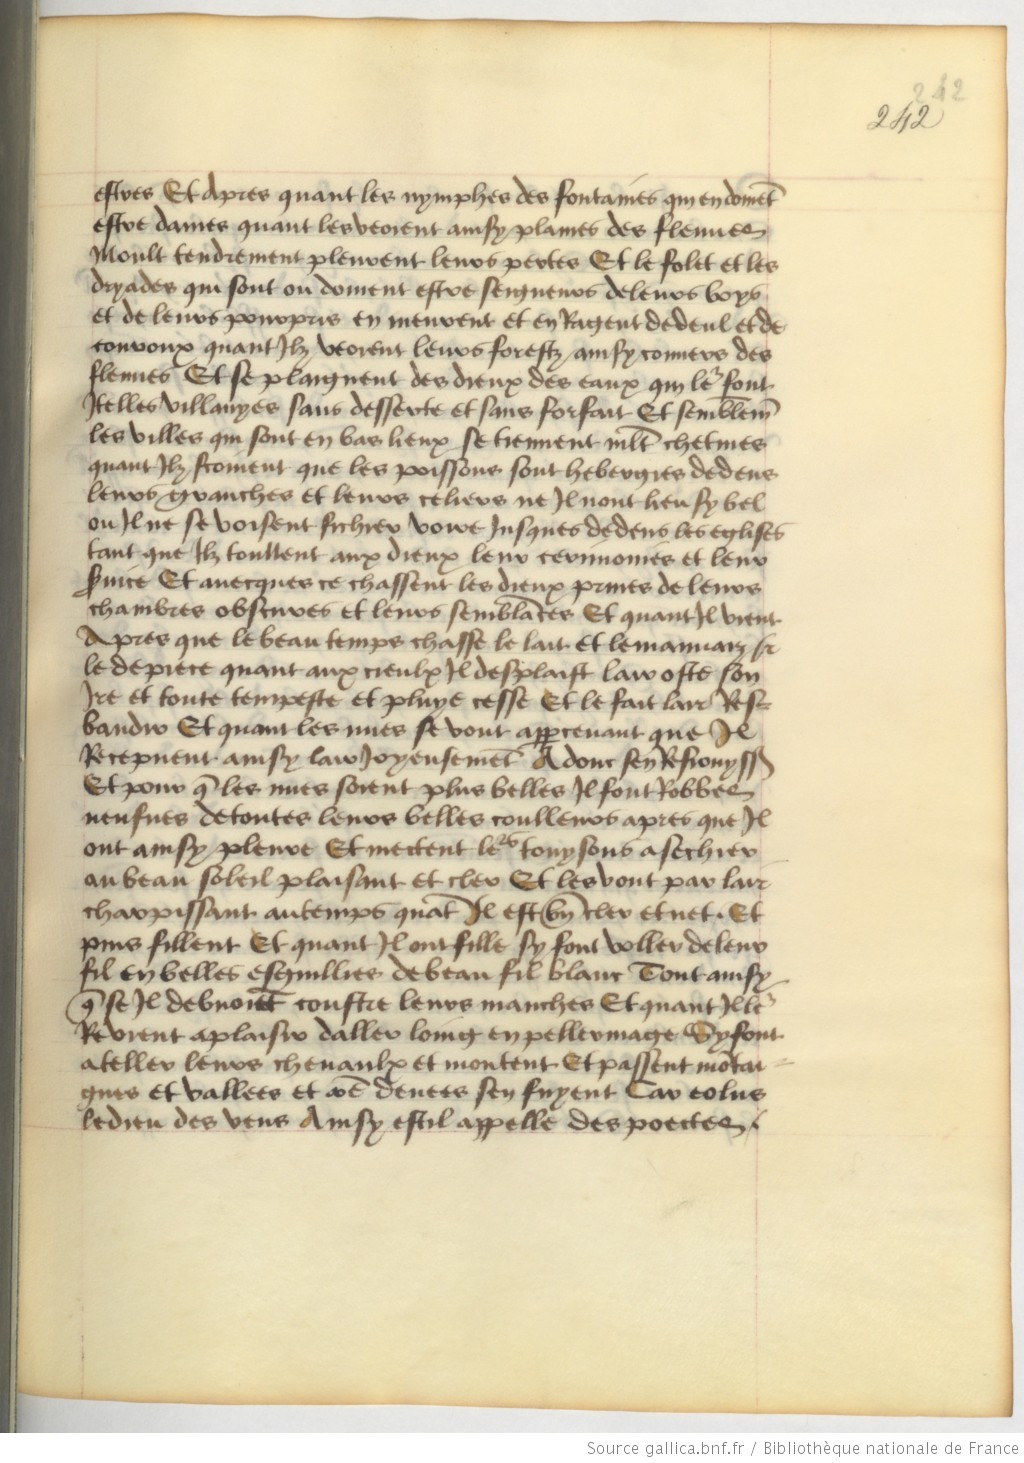 242
242
estres Et Apres quant les nymphes des fontaines qui en doinēt
estre dames quant les veoient ainsy plaines des fleuues
Moult tendrement pleurent leurs pertes Et le folet et les
dryades qui sont ou doiuent estre seigneurs de leurs boys
et de leurs pourpris en meurent et en Ragent de deul et de
couroux quant Jlz veoient leurs forestz ainsy couuers des
fleuues Et se plaignent des dieux des eaux qui ler font
Jtelles villanyes sans desserte et sans forfait Et semblem̄
les villes qui sont en bas lieux se tiennent mlt chetiues
quant Jlz scoiuent que les poissons sont hebergies dedens
leurs granches et leurs celiers ne Jl nont lieu sy bel
ou Jl ne se voisent fichier voire Jusques dedens les eglises
tant que Jlz toullent aux dieux leur cerimonies et leur
Suice Et auecques ce chassent les dieux priues de leurs
chambres obscures et leurs semblāces Et quant Jl vient
Apres que le beau temps chasse le lait et le mauuaiz
le depiece quant aux cieulx Jl desplaist lair oste son
Jre et toute tempeste et pluye cesse Et le fait lair Res
baudir Et quant les nues se vont appceuant que Jl
Recepuent ainsy lair Joyeusemēt Adonc sen Resiouyss
Et pour q̄ les nues soient plus belles Jl font Robbes
neufues de toutes leurs belles coulleurs apres que Jl
ont ainsy pleure Et mectent lers touysons a sechier
au beau soleil plaisant et cler Et les vont par lair
charpissant au temps quāt Jl est by cler et net. Et
puis fillent Et quant Jl ont fille sy font voller de leur
fil en belles esguillies de beau fil blanc Tout ainsy
q̄ se Jl debuoiēt coustre leurs manches Et quant Jl ler
Reuient a plaisir daller loing en pellerinage Sy font
atteller leurs cheuaulx et montent Et passent mōtai=
gnes et vallees et cōe deuees sen fuyent Car eolus
le dieu des vens Ainsy est il appelle des poectes.
Source gallica.bnf.fr / Bibliothèque nationale de France